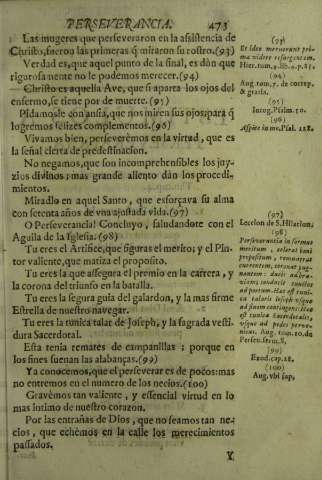 PERSEVERANCIA. 473
Las mugeres que perseveraron en la assistencia de
Christo, fueron las primeras q̃ miraron su rostro. (93)
Verdad es, que aquel punto de la final, es dòn que
rigurosamente no le podemos merecer. (94)
Christo es aquella Ave, que si aparta los ojos del
enfermo, se tiene por de muerte. (95)
Pidamosle con ansia, que nos miren sus ojos; para q̃
logremos felizes complementos. (96)
Vivamos bien, perseverèmos en la virtud, que es
la señal cierta de predestinacion.
No negamos, que son incomprehensibles los juy-
zios divinos; mas grande aliento dàn los procedi-
mientos.
Miradlo en aquel Santo, que esforçava su alma
con setenta años de vna ajustada vida. (97)
O Perseverancia! Concluyo, saludandote con el
Aguila de la Iglesia. (98)
Tu eres el Artifice, que figuras el merito; y el Pin-
tor valiente, que matiza el proposito.
Tu eres la que assegura el premio en la carrera, y
la corona del triunfo en la batalla.
Tu eres la segura guia del galardon, y la mas firme
Estrella de nuestro navegar.
Tu eres la tunica talar de Joseph, y la sagrada vesti-
dura Sacerdotal.
Esta tenia remates de campanillas; porque en
los fines suenan las alabanças. (99)
Ya conocemos, que el perseverar es de pocos: mas
no entremos en el numero de los necios. (100)
Gravèmos tan valiente, y essencial virtud en lo
mas intimo de nuestro corazon.
Por las entrañas de Dios, que no seamos tan ne-
cios, que echèmos en la calle los merecimientos
passados.
Y
(93)
Et ideo meruerunt pri-
ma videre resurgentem.
Hier. tom.
(94)
Aug. tom. 7. de correp.
& gratia.
(95)
Incog. Psalm. 30.
(96)
Aspice in me. Psal. 118.
(97)
Leccion de S. Hilarion.
(98)
Perseverantia
meritum, colorat boni
propositum, remunerat
currentem, coronat pug-
nantem: ducit ad bra-
vium, conducit
ad portum. Haec est tuni-
ca talaris Ioseph vsque
ad finem contingens: Haec
est tunica Sacerdotalis,
vsque ad pedes perve-
niens. Aug. tom. 10. de
Perseu. Serm. 8.
(99)
Exod. cap. 28.
(100)
Aug. vbi sup.